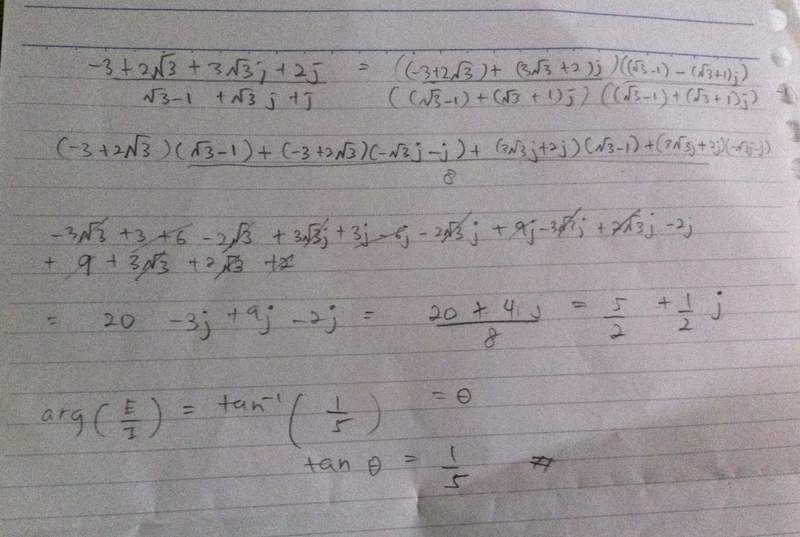 (-3 + 2√3 + 3√3 j + 2j) / (√3 - 1 + √3 j + j) = ((-3+2√3) + (3√3 + 2)j)((√3-1) - (√3+1)j) / ((√3-1) + (√3+1)j) ((√3-1) + (√3+1)j)
(-3+2√3)(√3-1) + (-3+2√3)(-√3j-j) + (3√3j+2j)(√3-1) + (3√3j+2j)(-√3j-j) / 8
-3√3 + 3 + 6 - 2√3 + 3√3j + 3j - 6j - 2√3j + 9j - 3√3j + 2√3j - 2j
+ 9 + 3√3 + 2√3 + 2
= 20 - 3j + 9j - 2j = (20 + 4j) / 8 = 5/2 + 1/2 j
arg(E/I) = tan⁻¹(1/5) = θ
tan θ = 1/5 #